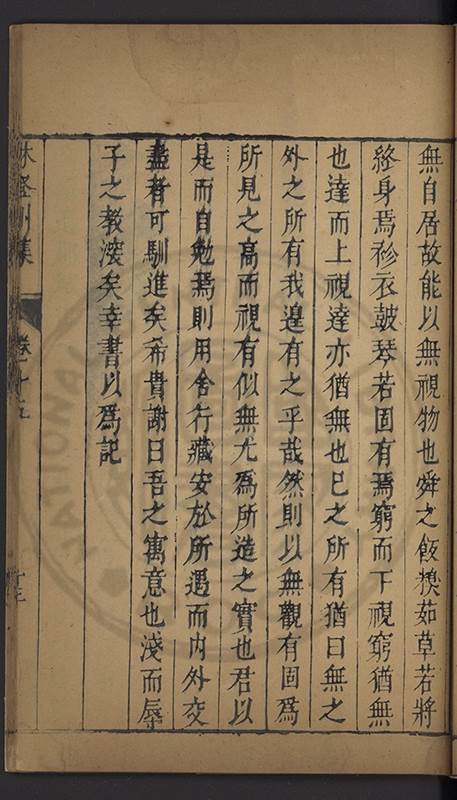 無自居故能以無視物也舜之飯糗茹草若將
終身焉袗衣鼓琴若固有焉窮而下視窮猶無
也達而上視達亦猶無也巳之所有猶曰無之
外之所有我遑有之乎哉然則以無觀有固爲
所見之高而視有似無尤爲所造之實也君以
是而自勉焉則用舍行藏安於所遇而内外交
盡者可馴進矣希貴謝曰吾之寓意也淺而辱
子之教深矣幸書以爲記
林登州集 卷十五 十七